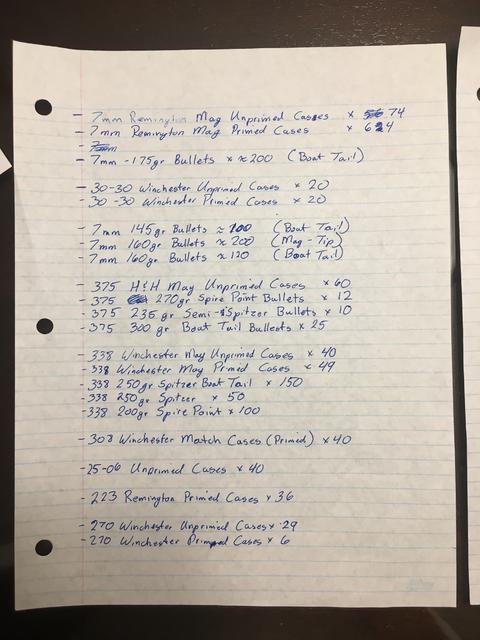 - 7mm Remington Mag Unprimed Cases x 74
- 7mm Remington Mag Primed Cases x 64
- 7mm
- 7mm - 175gr Bullets x ≈200 (Boat Tail)
- 30-30 Winchester Unprimed Cases x 20
- 30-30 Winchester Primed Cases x 20
- 7mm 145gr Bullets ≈ 100 (Boat Tail)
- 7mm 160gr Bullets ≈ 200 (Mag-Tip)
- 7mm 160gr Bullets ≈ 120 (Boat Tail)
- 375 H&H Mag Unprimed Cases x 60
- 375 270gr Spire Point Bullets x 12
- 375 235gr Semi-Spitzer Bullets x 10
- 375 300 gr Boat Tail Bullets x 25
- 338 Winchester Mag Unprimed Cases x 40
- 338 Winchester Mag Primed Cases x 49
- 338 250gr Spitzer Boat Tail x 150
- 338 250gr Spitzer x 50
- 338 200gr Spire Point x 100
- 308 Winchester Match Cases (Primed) x 40
- 25-06 Unprimed Cases x 40
- 223 Remington Primed Cases x 36
- 270 Winchester Unprimed Cases x 29
- 270 Winchester Primed Cases x 6